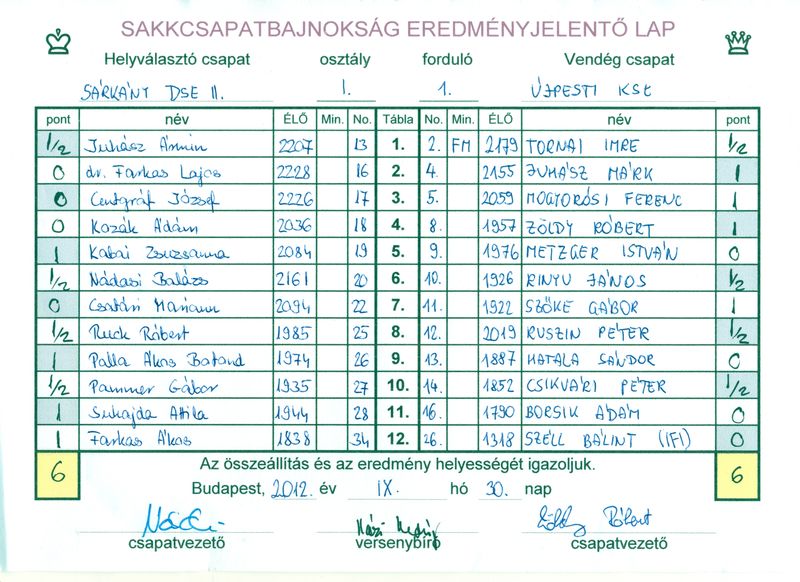 SAKKCSAPATBAJNOKSÁG EREDMÉNYJELENTŐ LAP
Helyválasztó csapat osztály forduló Vendég csapat
SÁRKÁNY DSE II. I. 1. ÚJPESTI KSE
pont név ÉLŐ Min. No. Tábla No. Min. ÉLŐ név pont
1/2 Juhász Ármin 2207 13 1. 2. FM 2179 TORNAI IMRE 1/2
0 dr. Farkas Lajos 2228 16 2. 4. 2155 JUHÁSZ MÁRK 1
0 Centgráf József 2226 17 3. 5. 2059 MOGYORÓSI FERENC 1
0 Kozák Ádám 2036 18 4. 8. 1957 ZÖLDY RÓBERT 1
1 Kabai Zsuzsanna 2084 19 5. 9. 1976 METZGER ISTVÁN 0
1/2 Nádasi Balázs 2161 20 6. 10. 1926 RINYU JÁNOS 1/2
0 Csatári Mariann 2094 22 7. 11. 1922 SZŐKE GÁBOR 1
1/2 Ruck Róbert 1985 25 8. 12. 2019 RUSZIN PÉTER 1/2
1 Palla Ákos Botond 1974 26 9. 13. 1887 HATALA SÁNDOR 0
1/2 Pammer Gábor 1935 27 10. 14. 1852 CSIKVÁRI PÉTER 1/2
1 Suhajda Attila 1944 28 11. 16. 1790 BORSIK ÁDÁM 0
1 Farkas Ákos 1838 34 12. 26. 1318 SZÉLL BÁLINT (IFI) 0
6 Az összeállítás és az eredmény helyességét igazoljuk. 6
Budapest, 2012. év IX. hó 30. nap
Zöldy Róbert
csapatvezető versenybíró csapatvezető